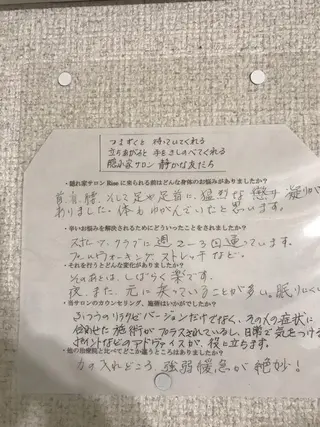 つまずくと 待っていてくれる
立ちあがると 手をさしのべてくれる
隠れ家サロン 静かな友だち
・隠れ家サロン Rinn に来られる前はどんな身体のお悩みがありましたか?
肩、首、腰、そして足や足首に、猛烈な 懲り 凝りが
ありました。体も ゆがんでいたと思います。
・辛いお悩みを解決されるためにどういったことをされましたか?
スポーツ・クラブに週2〜3回 通っています。
プールウォーキング、ストレッチなど。
・それを行うとどんな変化がありましたか?
そのあとは、しばらく楽です。
夜、また、元に戻っていることが多い。眠りにくい
・当サロンのカウンセリング、施術はいかがでしたか?
ふつうのリラクゼーションだけでなく、その人の症状に
合わせた施術がプラスされているし、日常で気をつける
ポイントなどのアドヴァイスが、役に立ちます。
・他の治療院と比べてどこか違うところはありましたか?
力の入れどころ、強弱緩急が絶妙!